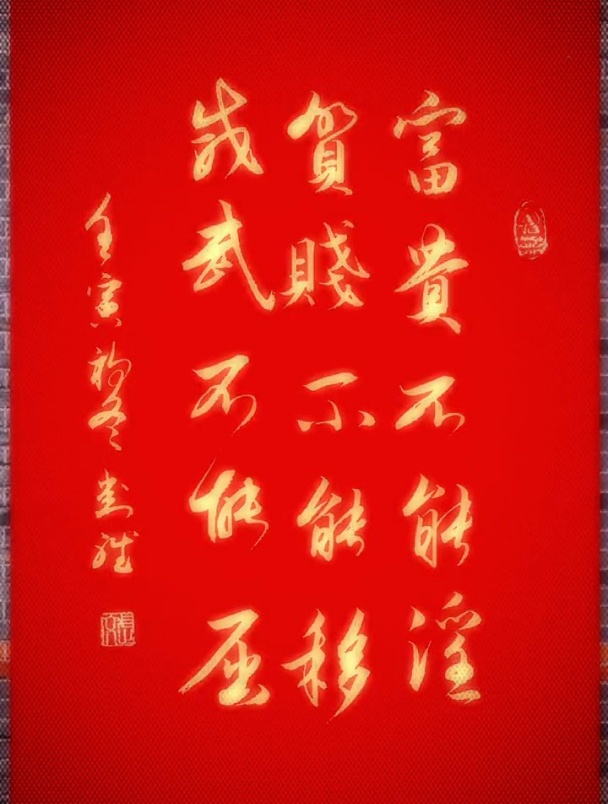 富貴不能淫
賀賤不能移
威武不能屈
壬寅初冬